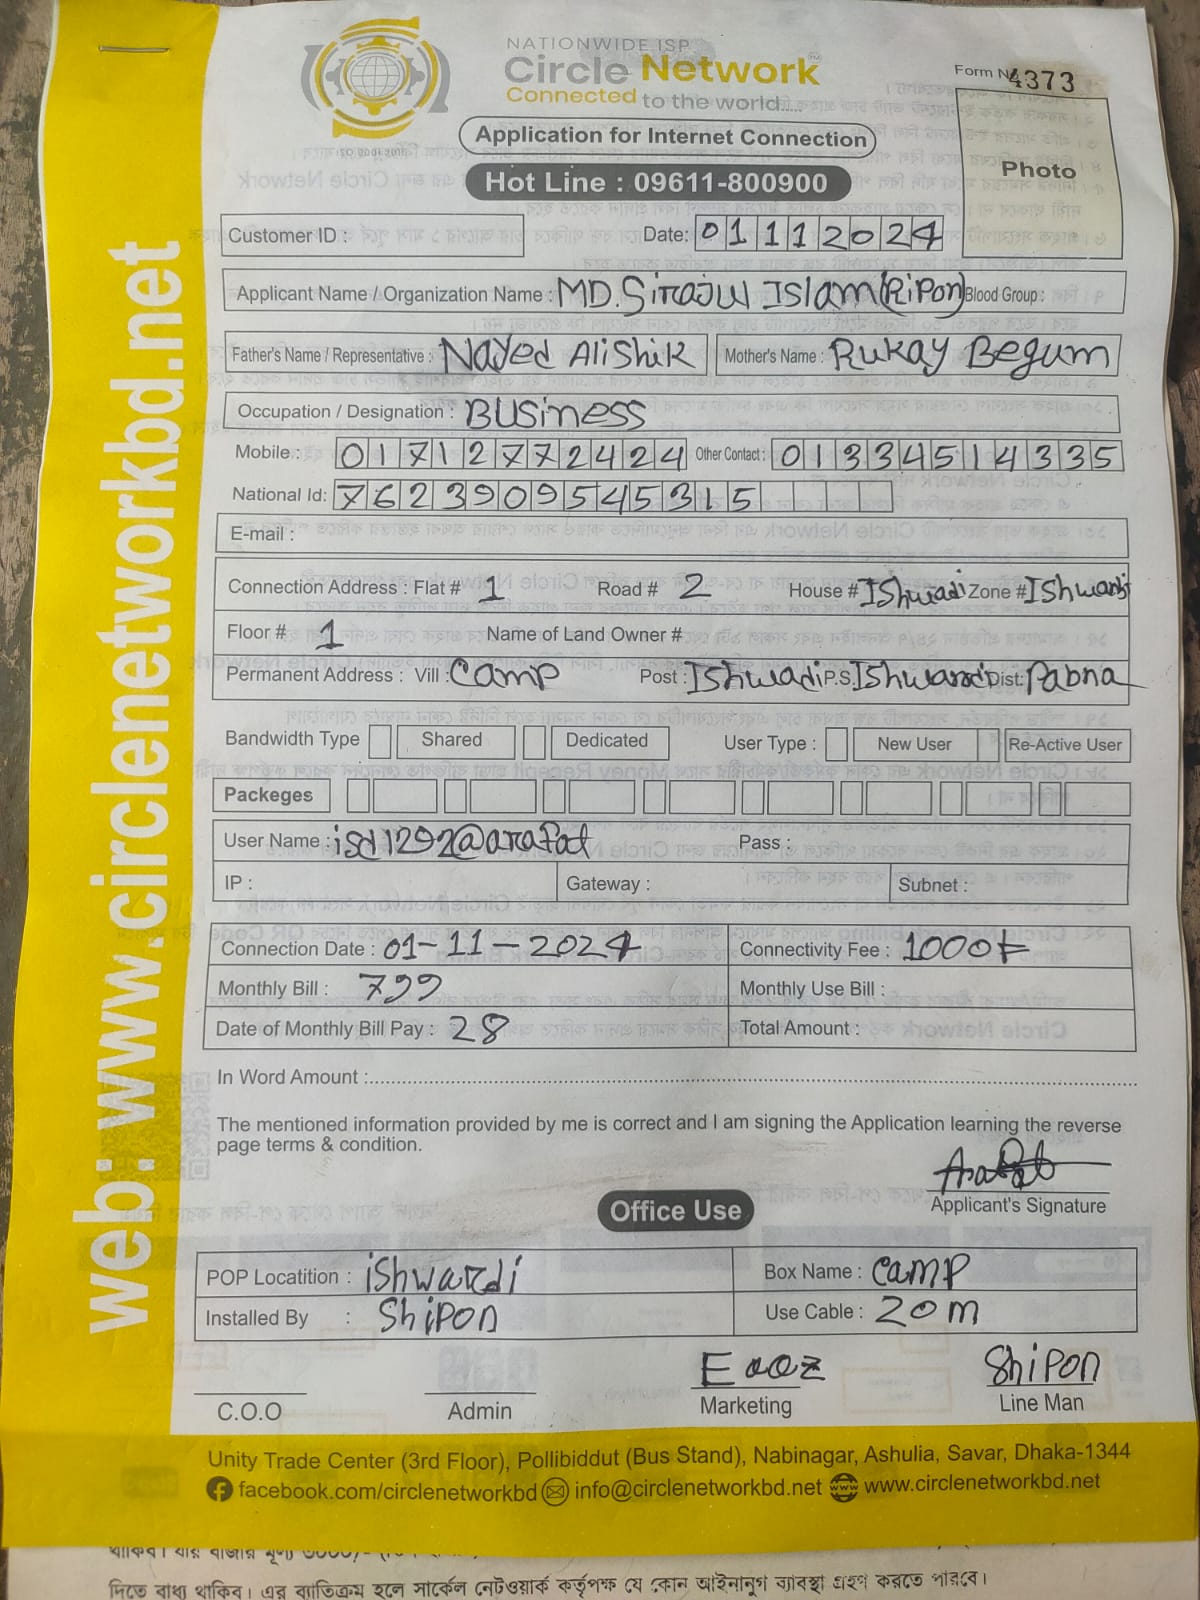 NATIONWIDE ISP
Circle Network™
Connected to the world.....
Form No 4373
Application for Internet Connection
Photo
Hot Line : 09611-800900
Customer ID :
Date: 01112024
Applicant Name / Organization Name : MD. Sirajul Islam (Ripon) Blood Group :
Father's Name / Representative : Nayed Ali Shik Mother's Name : Rukay Begum
Occupation / Designation : Business
Mobile : 01712772424 Other Contact : 01334514335
National Id: 7623909545315
E-mail :
Connection Address : Flat # 1 Road # 2 House # IShwadi Zone # IShwardi
Floor # 1 Name of Land Owner #
Permanent Address : Vill : Camp Post : IShwadi P.S. IShwardi Dist: Pabna
Bandwidth Type Shared Dedicated User Type : New User Re-Active User
Packeges
User Name : isd1292@arafat Pass :
IP : Gateway : Subnet :
Connection Date : 01-11-2024 Connectivity Fee : 1000
Monthly Bill : 799 Monthly Use Bill :
Date of Monthly Bill Pay : 28 Total Amount :
In Word Amount :
The mentioned information provided by me is correct and I am signing the Application learning the reverse
page terms & condition.
Arafat
Applicant's Signature
Office Use
POP Locatition : iShwardi Box Name : Camp
Installed By : ShiPON Use Cable : 20m
ShiPON
C.O.O Admin Marketing Line Man
Unity Trade Center (3rd Floor), Pollibiddut (Bus Stand), Nabinagar, Ashulia, Savar, Dhaka-1344
facebook.com/circlenetworkbd info@circlenetworkbd.net www.circlenetworkbd.net
web: www.circlenetworkbd.net
দিতে বাধ্য থাকিব। এর ব্যতিক্রম হলে সার্কেল নেটওয়ার্ক কর্তৃপক্ষ যে কোন আইনানুগ ব্যবস্থা গ্রহণ করতে পারবে।